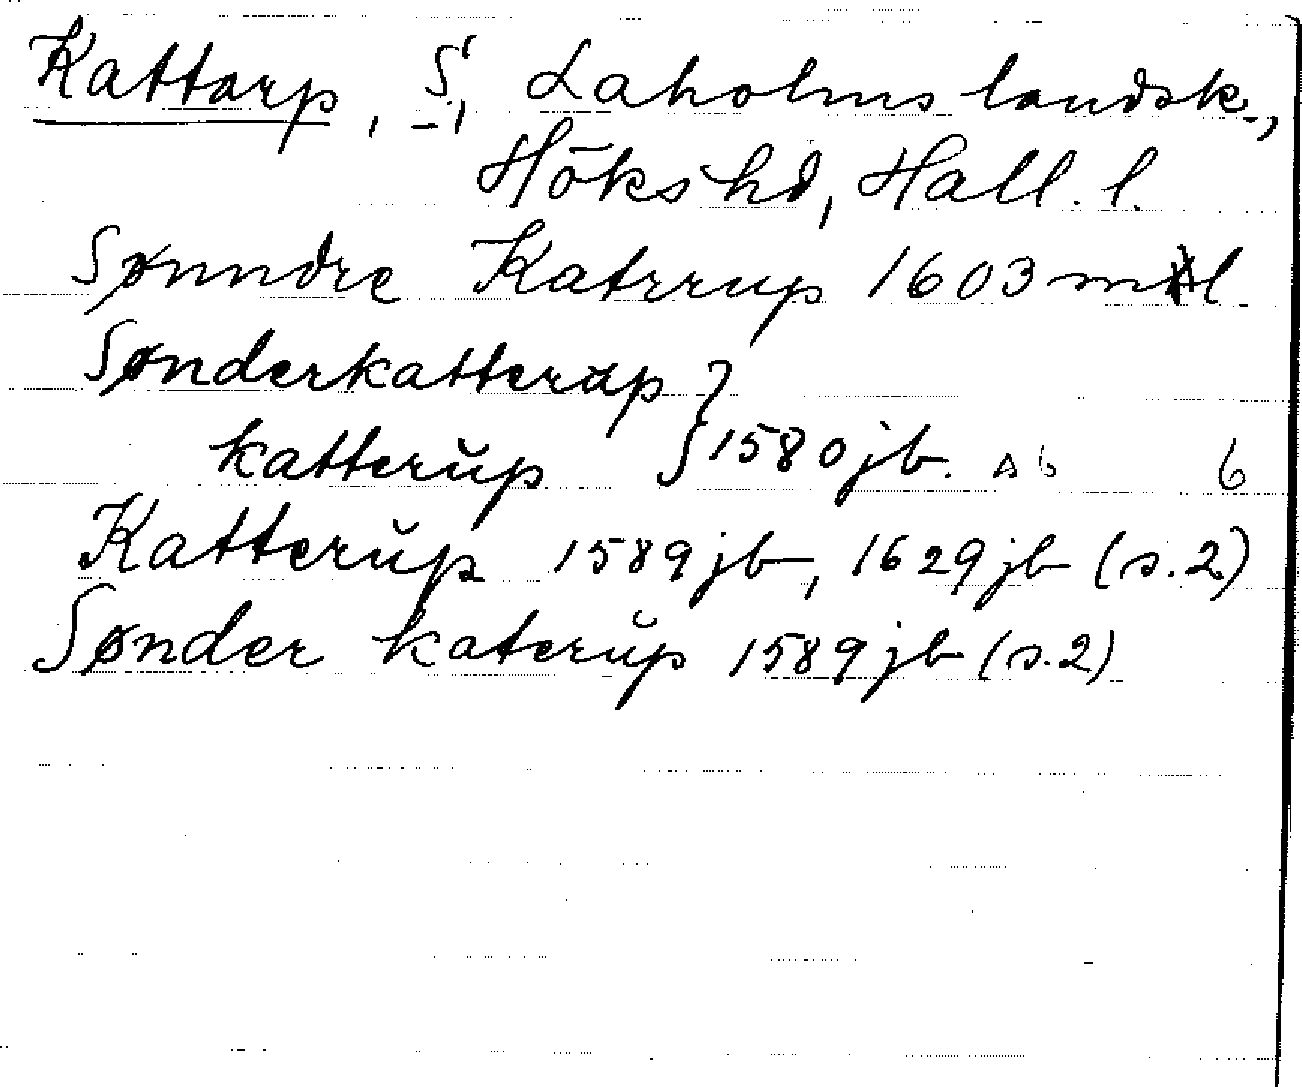 Kattarp, S. -, Laholms landsk.,
Hökshd, Hall. l.
Sønndre Katrrup 1603 ml.
Sønderkatterup }
katterŭp } 1580 jb. 6
Katterŭp 1589 jb, 1629 jb (s. 2)
Sønder katerŭp 1589 jb (s. 2)